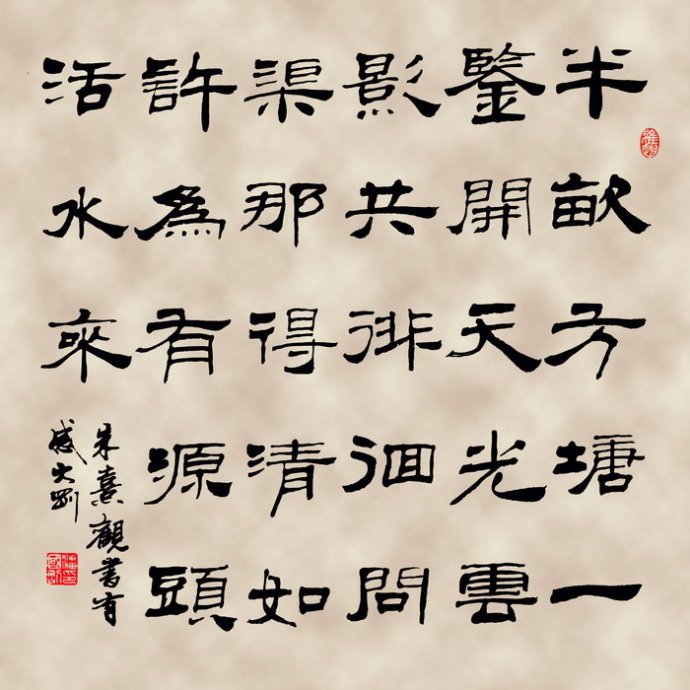 半畝方塘一
鑒開天光雲
影共徘徊問
渠那得清如
許為有源頭
活水來
朱熹觀書有
感